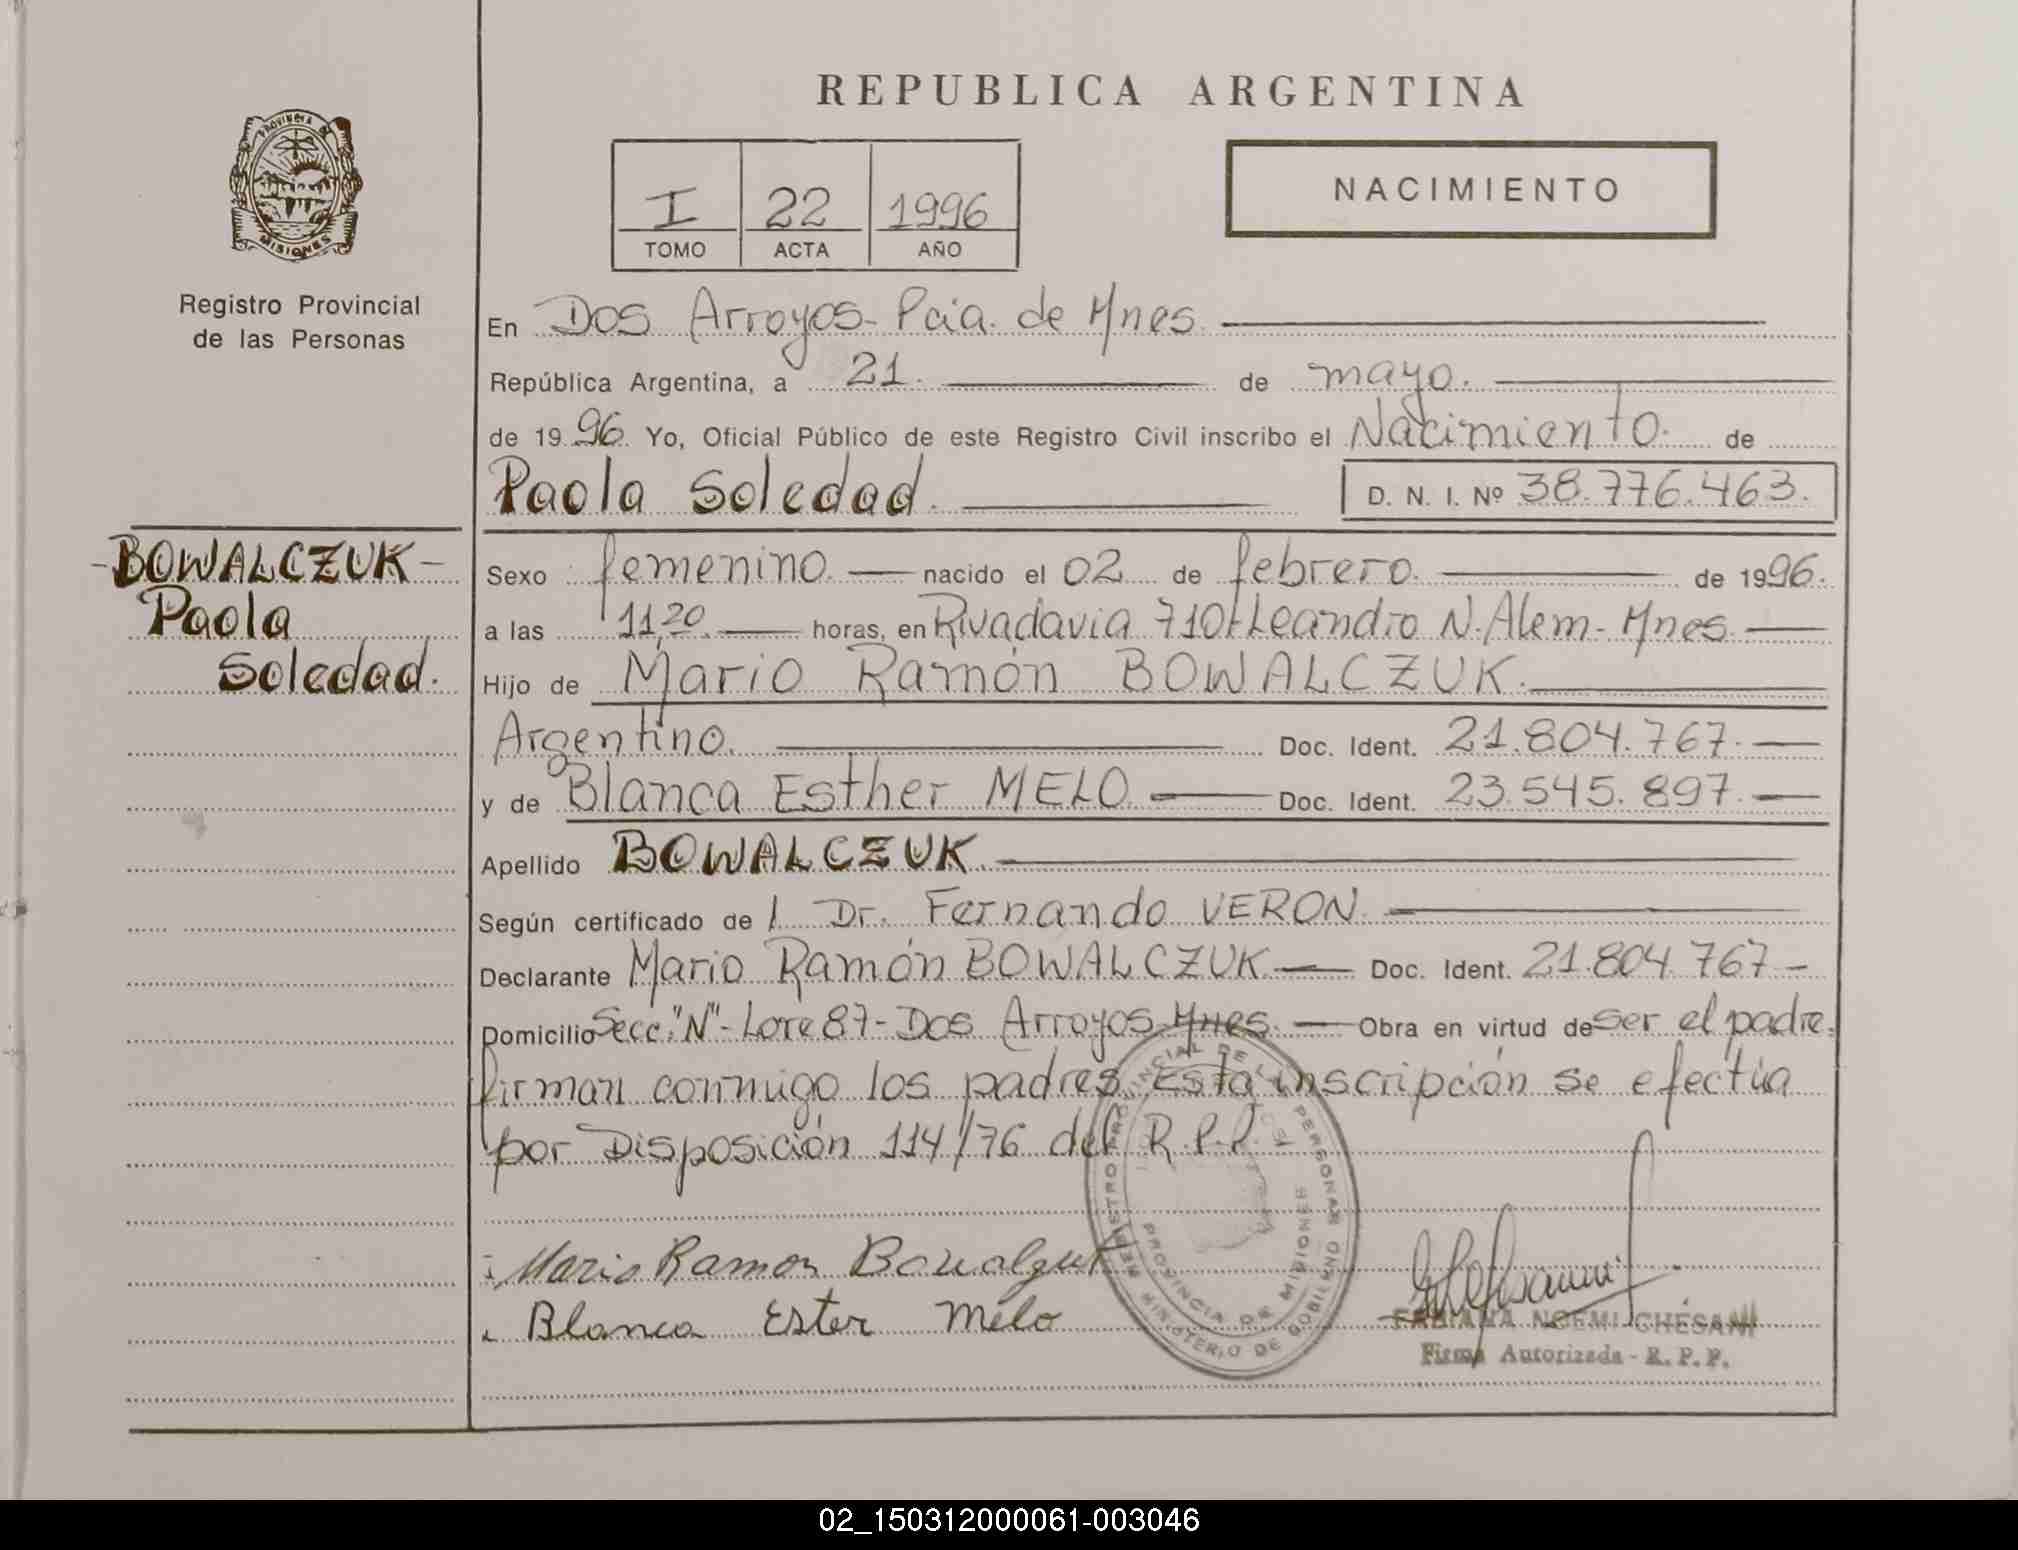 REPUBLICA ARGENTINA
PROVINCIA DE
MISIONES
Registro Provincial
de las Personas
I 22 1996
TOMO ACTA AÑO
NACIMIENTO
En Dos Arroyos- Pcia. de Mnes.
República Argentina, a 21. de mayo.
de 1996. Yo, Oficial Público de este Registro Civil inscribo el Nacimiento. de
Paola Soledad. D. N. I. Nº 38.776.463.
-BOWALCZUK-
Paola
Soledad.
Sexo femenino. nacido el 02 de febrero. de 1996.
a las 11,20. horas, en Rivadavia 710-Leandro N. Alem- Mnes.
Hijo de Mario Ramón BOWALCZUK.
Argentino. Doc. Ident. 21.804.767.
y de Blanca Esther MELO. Doc. Ident. 23.545.897.
Apellido BOWALCZUK.
Según certificado de l Dr. Fernando VERON.
Declarante Mario Ramón BOWALCZUK Doc. Ident. 21.804.767-
Domicilio Secc. "N"- Lote 87- Dos Arroyos Mnes. Obra en virtud de ser el padre.
firman conmigo los padres, Esta inscripción se efectúa
por Disposición 114/76 del R.P.P.-
REGISTRO PROVINCIAL DE LAS PERSONAS
MINISTERIO DE GOBIERNO
PROVINCIA DE MISIONES
Mario Ramon Bowalczuk
Blanca Ester Melo
FABIANA NOEMI CHESANI
Firma Autorizada - R. P. P.
02_150312000061-003046